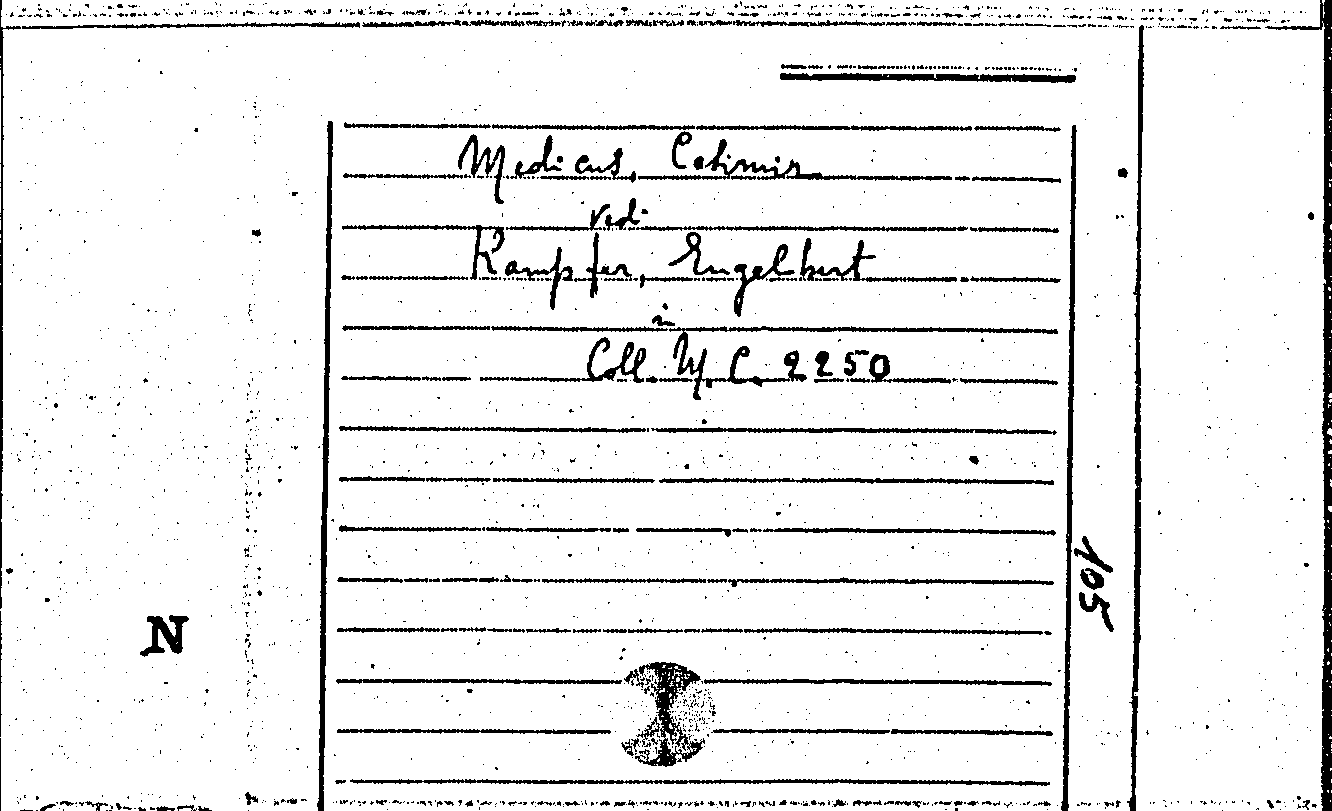 Medicus, Casimir
vedi
Kampfer, Engelbert
in
Coll. M. C. 2250
105
N